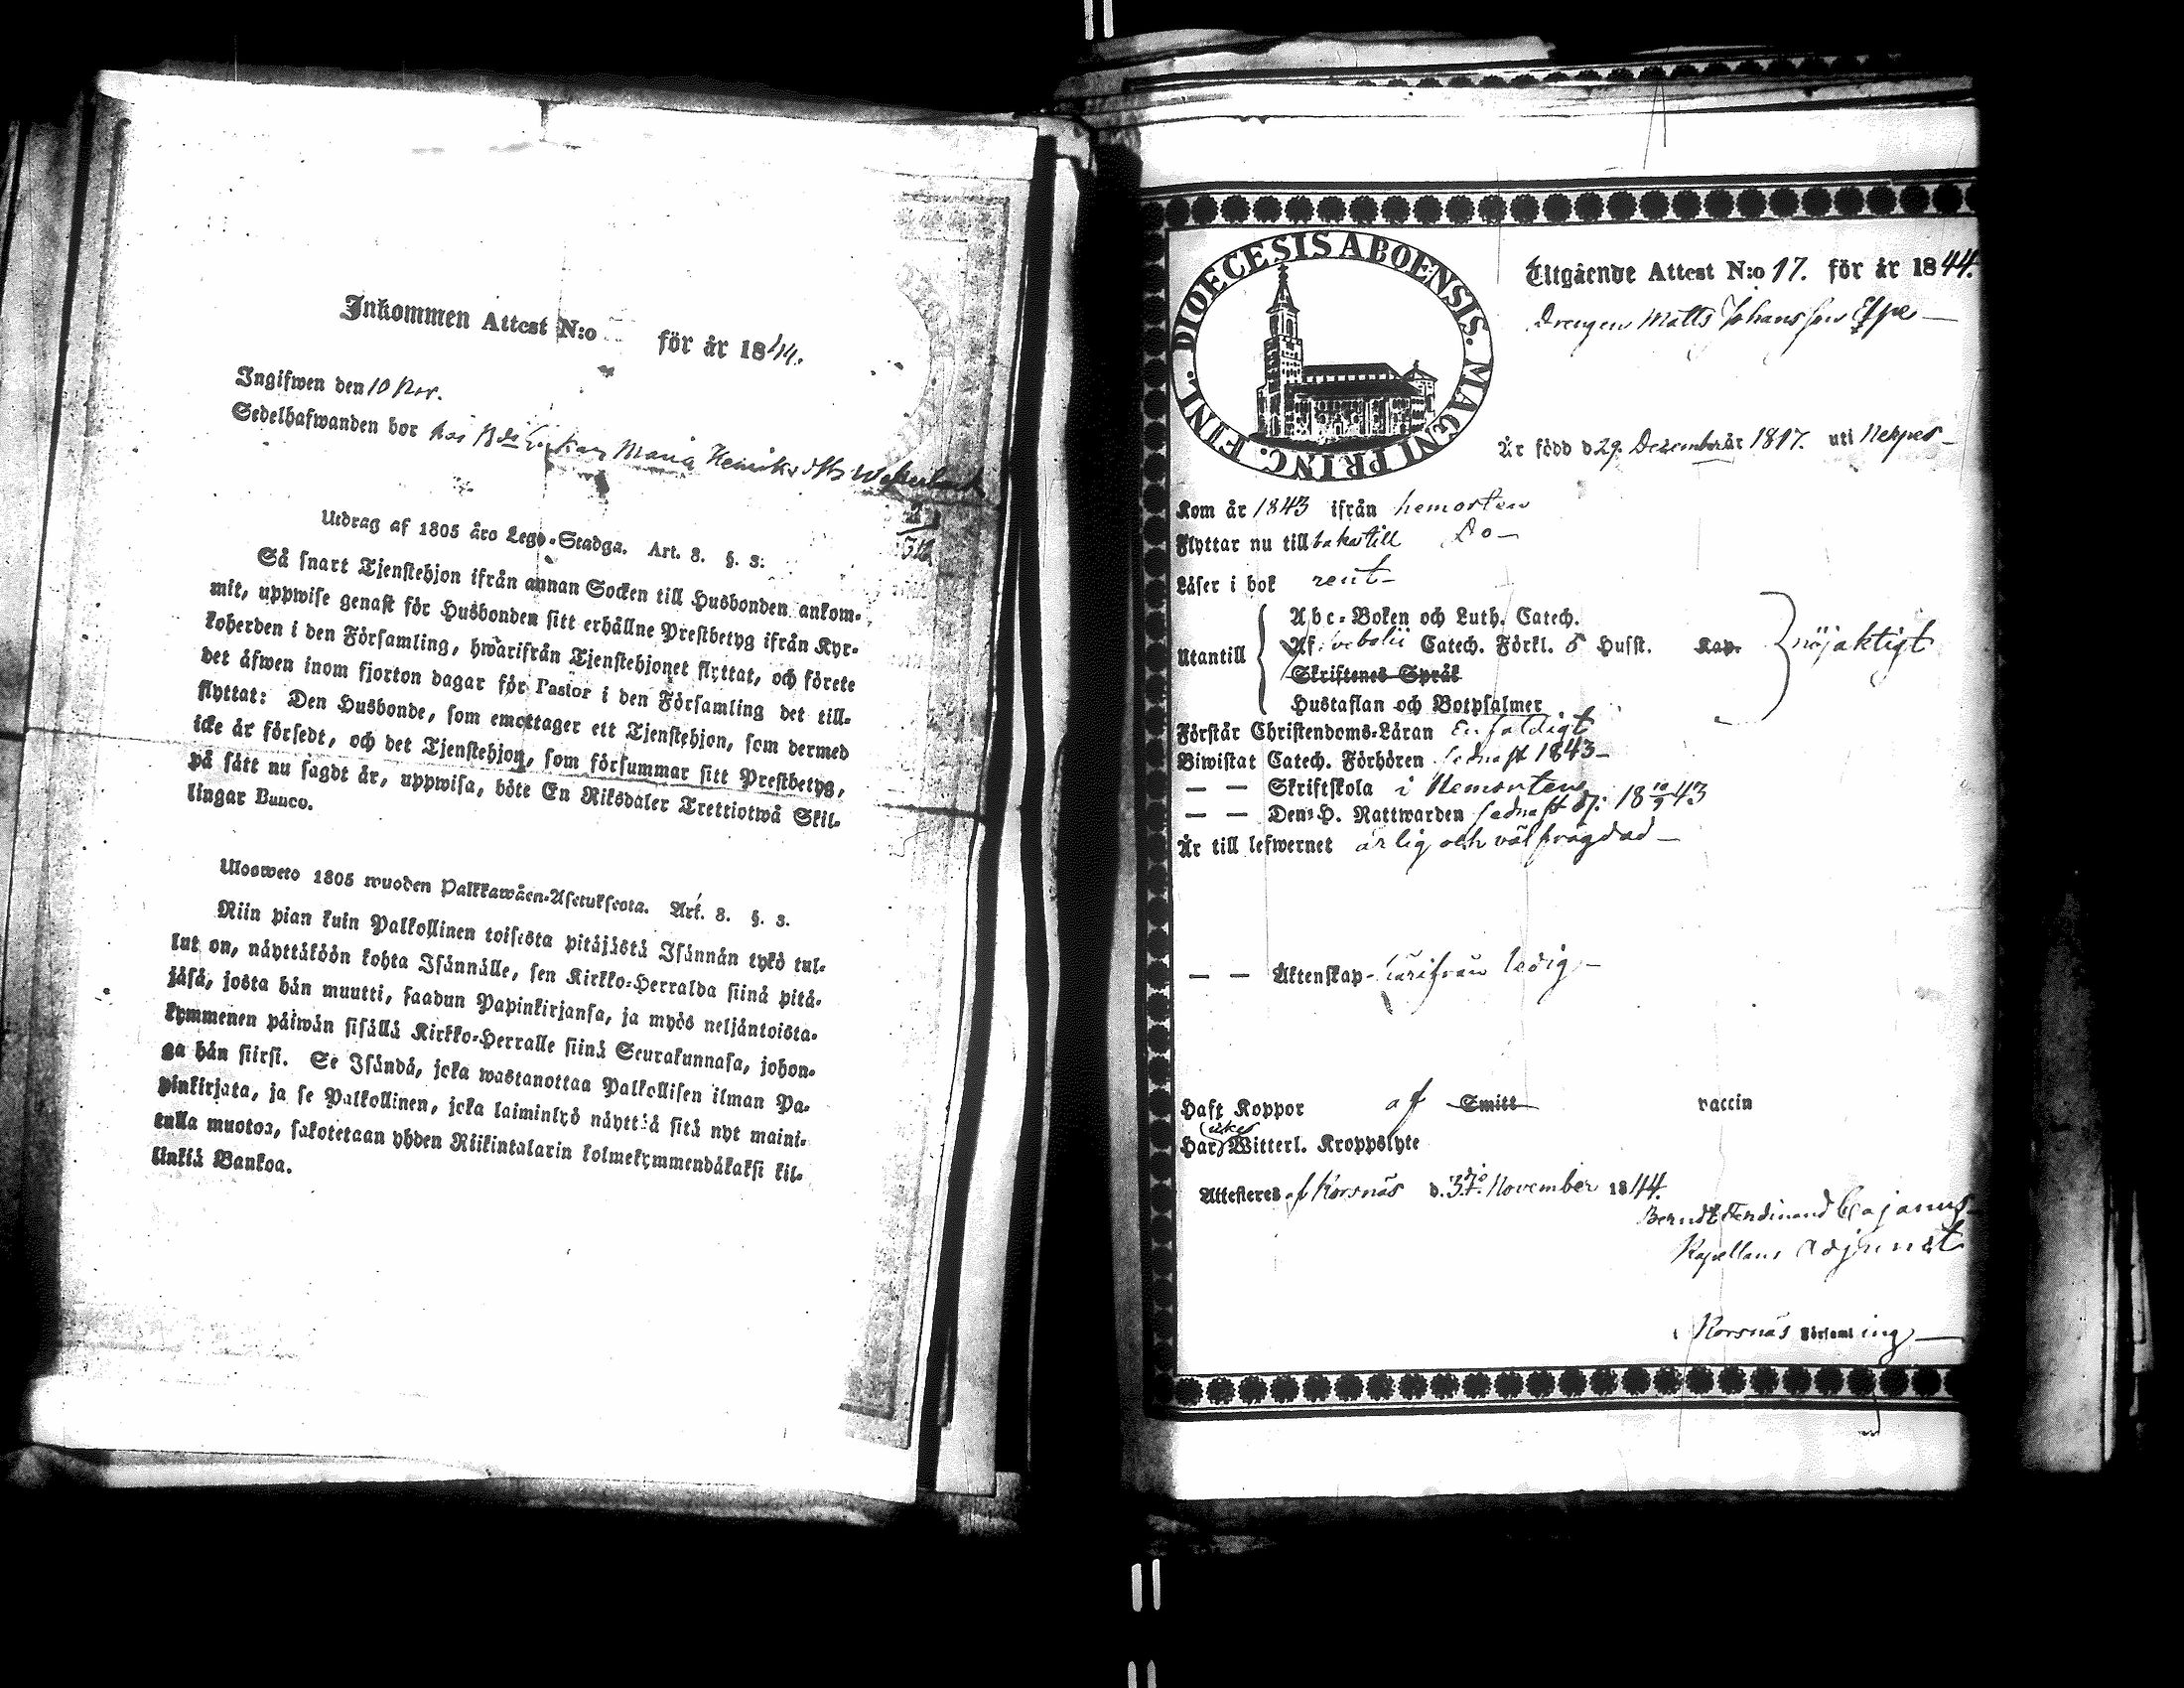 Inkommen Attest N:o för år 1844.
Ingifwen den 10 Nov.
Sedelhafwanden bor hos Maria Henriksdtr
Utdrag af 1805 års Lego-Stadga. Art. 8. §. 3:
Så snart Tjenstehjon ifrån annan Socken till Husbonden ankom-
mit, uppwise genast för Husbonden sitt erhållne Prestbetyg ifrån Kyr-
koherden i den Församling, hwarifrån Tjenstehjonet flyttat, och förete
det äfwen inom fjorton dagar för Pastor i den Församling det till-
flyttat: Den Husbonde, som emottager ett Tjenstehjon, som dermed
icke är försedt, och det Tjenstehjon, som försummar sitt Prestbetyg,
på sätt nu sagdt är, uppwisa, böte En Riksdaler Trettiotwå Skil-
lingar Banco.
Ulosweto 1805 wuoden Palkkawäen-Asetuksesta. Art. 8. §. 3.
Niin pian kuin Palkollinen toisesta pitäjästä Isännän tykö tul-
lut on, näyttäköön kohta Isännälle, sen Kirkko-Herralda siinä pitä-
jäsä, josta hän muutti, saadun Papinkirjansa, ja myös neljäntoista-
kymmenen päiwän sisällä Kirkko-Herralle siinä Seurakunnasa, johon-
ga hän siirsi. Se Isändä, joka wastanottaa Palkollisen ilman Pa-
pinkirjata, ja se Palkollinen, joka laiminlyö näyttää sitä nyt maini-
tulla muotoa, sakotetaan yhden Riikintalarin kolmekymmendäkaksi kil-
linkiä Bankoa.
DIOECESIS ABOENSIS. MAGNI PRINC. FINL.
Utgående Attest N:o 17. för år 1844.
Drengen Matts Johansson
Är född d 29. Dezember år 1817. uti Nerpes
Kom år 1843 ifrån hemorten
Flyttar nu till baka till Do
Läser i bok rent
Utantill
Abc-Boken och Luth. Catech.
Af Svebelii Catech. Förkl. o Husst. Kap.
Skriftenes Språk
Hustaflan och Botpsalmer
nöjaktigt
Förstår Christendoms-Läran Enfaldigt
Biwistat Catech. Förhören sednast 1843
— — Skriftskola i Hemorten
— — Den H. Nattwarden sednast d. 18 10/9 43
Är till lefwernet ärlig och väl frägdad
— — Äktenskap härifrån ledig
Haft Koppor af Smitt vaccin
Har icke Witterl. Kroppslyte
Attesteres af Korsnäs d. 3. November 1844.
Berndt Ferdinand Cajanus
Kapellans Adjunct
Korsnäs Församling